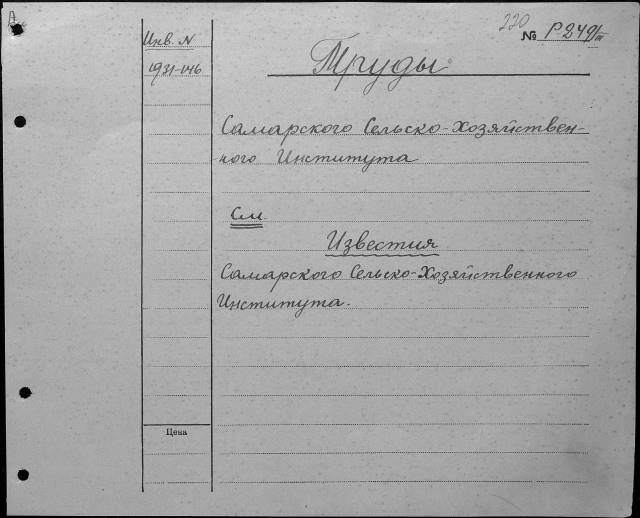 А
220
№ Р 249/III
Инв. N
1931-146
Труды
Самарского Сельско-Хозяйствен-
ного Института
См.
Известия
Самарского Сельско-Хозяйственного
Института.
Цена